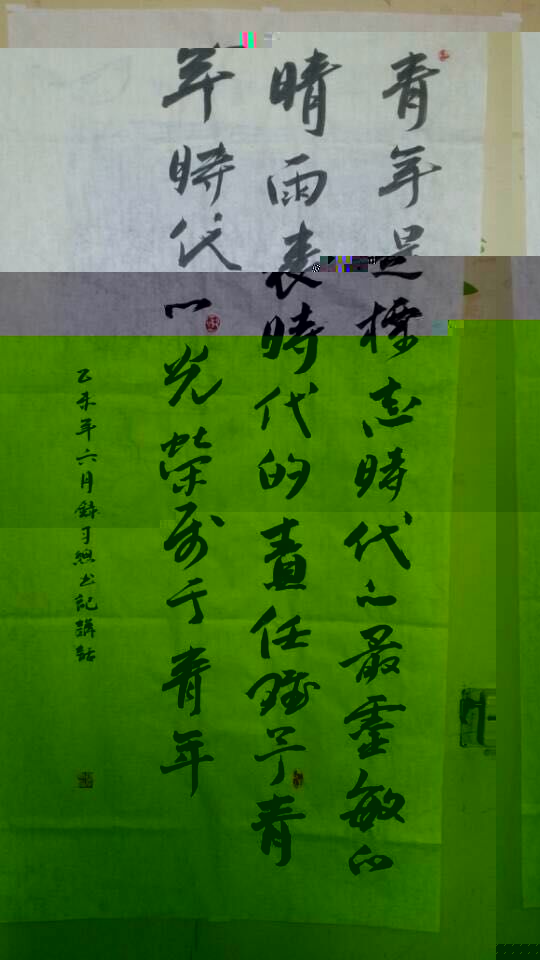 青年是標志時代的最靈敏的
晴雨表時代的責任賦予青
年時代的光榮属于青年
乙未年六月錄习總书記講話